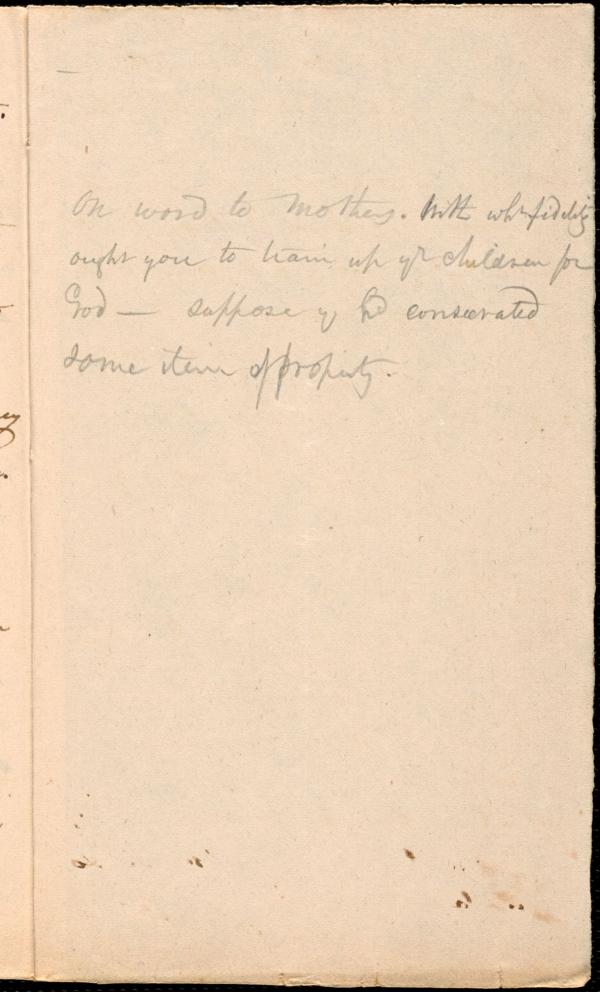 On word to Mothers. With wht fidelity
ought you to train up yr children for
God — suppose y hd consecrated
some item of property.